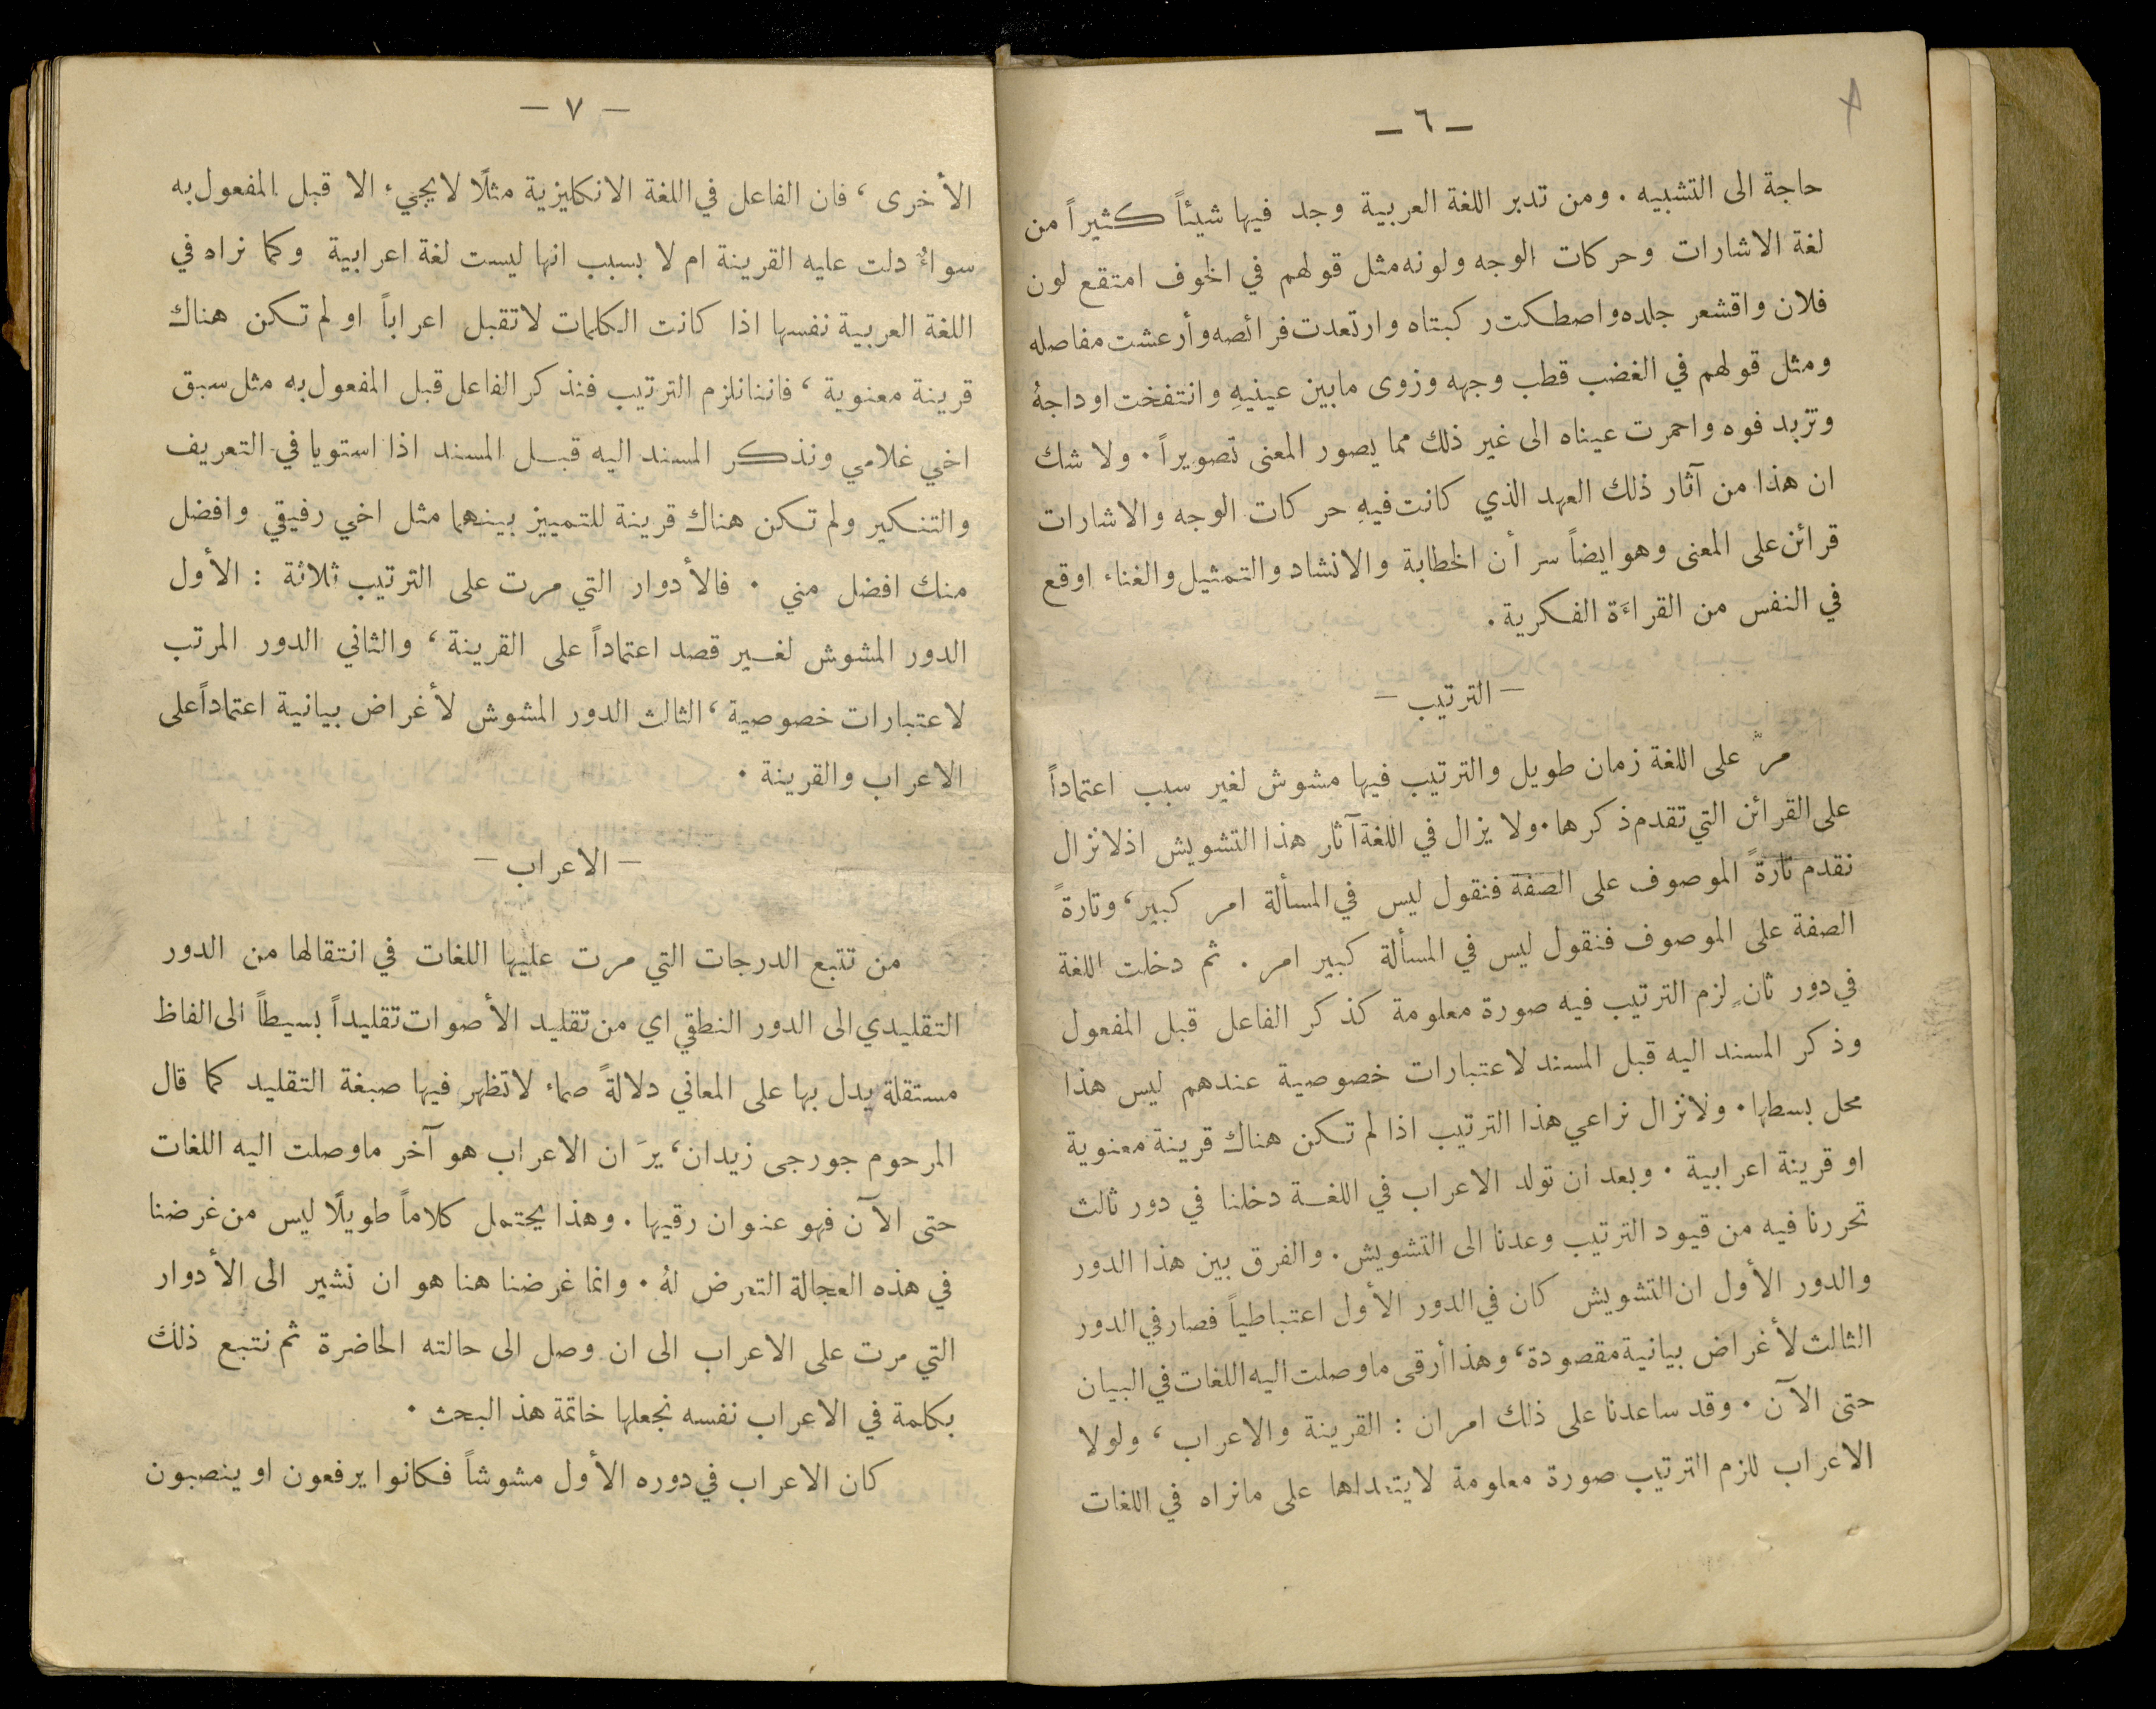 — ٦ —
حاجة الى التشبيه . ومن تدبر اللغة العربية وجد فيها شيئاً كثيراً من
لغة الاشارات وحركات الوجه ولونه مثل قولهم في الخوف امتقع لون
فلان واقشعر جلده واصطكت ركبتاه وارتعدت فرائصه وأرعشت مفاصله
ومثل قولهم في الغضب قطب وجهه وزوى مابين عينيهِ وانتفخت اوداجهُ
وتزبد فوه واحمرت عيناه الى غير ذلك مما يصور المعنى تصويراً . ولا شك
ان هذا من آثار ذلك العهد الذي كانت فيهِ حركات الوجه والاشارات
قرائن على المعنى وهو ايضاً سر أن الخطابة والانشاد والتمثيل والغناء اوقع
في النفس من القراءَة الفكرية .
— الترتيب —
مرَّ على اللغة زمان طويل والترتيب فيها مشوش لغير سبب اعتماداً
على القرائن التي تقدم ذكرها . ولا يزال في اللغة آثار هذا التشويش اذ لانزال
نقدم تارةً الموصوف على الصفة فنقول ليس في المسألة امر كبير ، وتارةً
الصفة على الموصوف فنقول ليس في المسألة كبير امر . ثم دخلت اللغة
في دور ثانٍ لزم الترتيب فيه صورة معلومة كذكر الفاعل قبل المفعول
وذكر المسند اليه قبل المسند لاعتبارات خصوصية عندهم ليس هذا
محل بسطها . ولانزال نراعي هذا الترتيب اذا لم تكن هناك قرينة معنوية
او قرينة اعرابية . وبعد ان تولد الاعراب في اللغة دخلنا في دور ثالث
تحررنا فيه من قيود الترتيب وعدنا الى التشويش . والفرق بين هذا الدور
والدور الأول ان التشويش كان في الدور الأول اعتباطياً فصار في الدور
الثالث لأغراض بيانية مقصودة ، وهذا أرقى ماوصلت اليه اللغات في البيان
حتى الآن . وقد ساعدنا على ذلك امران : القرينة والاعراب ، ولولا
الاعراب للزم الترتيب صورة معلومة لايتعداها على مانراه في اللغات
— ٧ —
الأخرى ، فان الفاعل في اللغة الانكليزية مثلًا لايجيء الا قبل المفعول به
سواءٌ دلت عليه القرينة ام لا بسبب انها ليست لغة اعرابية وكما نراه في
اللغة العربية نفسها اذا كانت الكلمات لاتقبل اعراباً او لم تكن هناك
قرينة معنوية ، فاننانلزم الترتيب فنذكر الفاعل قبل المفعول به مثل سبق
اخي غلامي ونذكر المسند اليه قبل المسند اذا استويا في التعريف
والتنكير ولم تكن هناك قرينة للتمييز بينهما مثل اخي رفيقي وافضل
منك افضل مني . فالأدوار التي مرت على الترتيب ثلاثة : الأول
الدور المشوش لغير قصد اعتماداً على القرينة ، والثاني الدور المرتب
لاعتبارات خصوصية ، الثالث الدور المشوش لأغراض بيانية اعتماداً على
الاعراب والقرينة .
— الاعراب —
من تتبع الدرجات التي مرت عليها اللغات في انتقالها من الدور
التقليدي الى الدور النطقي اي من تقليد الأصوات تقليداً بسيطاً الى الفاظ
مستقلة يدل بها على المعاني دلالةً صماء لاتظهر فيها صبغة التقليد كما قال
المرحوم جورجى زيدان ، يرَ ان الاعراب هو آخر ماوصلت اليه اللغات
حتى الآن فهو عنوان رقيها . وهذا يحتمل كلاماً طويلًا ليس من غرضنا
في هذه العجالة التعرض لهُ . وانما غرضنا هنا هو ان نشير الى الأدوار
التي مرت على الاعراب الى ان وصل الى حالته الحاضرة ثم نتبع ذلك
بكلمة في الاعراب نفسه نجعلها خاتمة هذ البحث .
كان الاعراب في دوره الأول مشوشاً فكانوا يرفعون او ينصبون